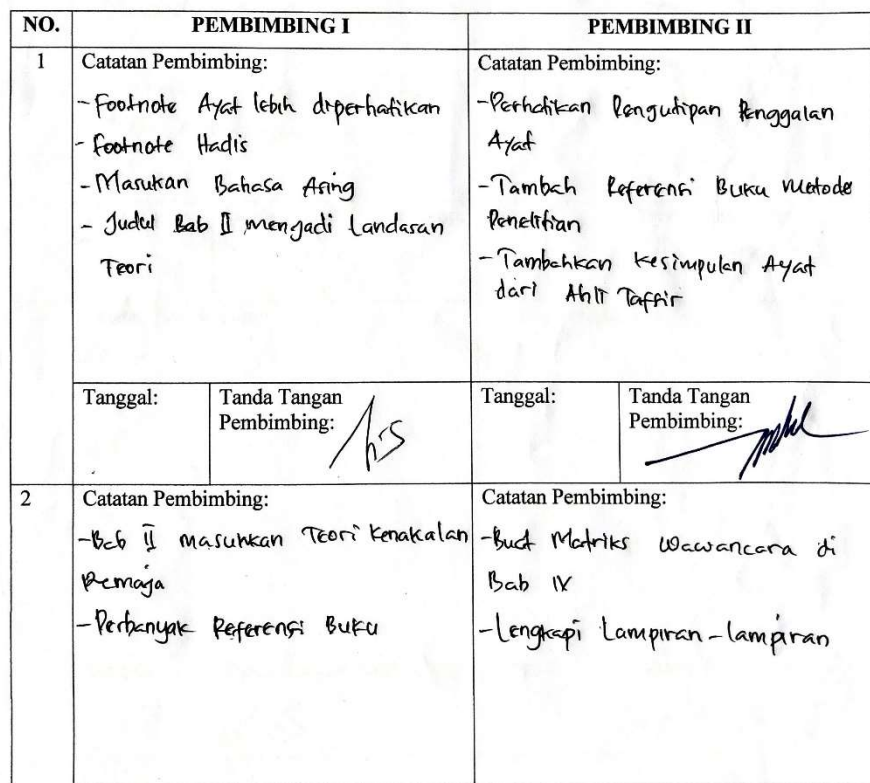 NO.
PEMBIMBING I
PEMBIMBING II
1
Catatan Pembimbing:
- Footnote Ayat lebih diperhatikan
- footnote Hadis
- Masukan Bahasa Asing
- Judul Bab II mengadi Landasan
Teori
Catatan Pembimbing:
- Perhatikan Pengutipan Penggalan
Ayat
- Tambah Referensi Buku Metode
Penelitian
- Tambahkan Kesimpulan Ayat
dari Ahli Taffir
Tanggal:
Tanda Tangan
Pembimbing:
Tanggal:
Tanda Tangan
Pembimbing:
2
Catatan Pembimbing:
- Bab II masukkan Teori Kenakalan
Remaja
- Perbanyak Referensi Buku
Catatan Pembimbing:
- Buat Matriks Wawancara di
Bab IV
- Lengkapi Lampiran-lampiran